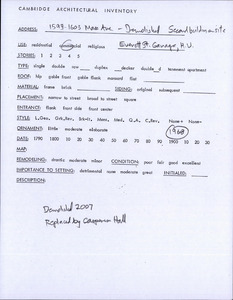 CAMBRIDGE ARCHITECTURAL INVENTORY
ADDRESS: 1593-1603 Mass Ave. - Demolished Second building on site
USE: residential commercial religious Everett St. Garage, H.U.
STORIES: 1 2 3 4 5
TYPE: single double row duplex decker double d tenement apartment
ROOF: hip gable front gable flank mansard flat
MATERIAL: frame brick SIDING: original subsequent
PLACEMENT: narrow to street broad to street square
ENTRANCE: flank front side front center
STYLE: Q.A. None
ORNAMENT: little moderate elaborate 1968
DATE: 1790 1800 10 20 30 40 50 60 70 80 90 1900 10 20 30
MAP:
REMODELING: drastic moderate minor CONDITION: poor fair good excellent
IMPORTANCE TO SETTING: detrimental none moderate great INITIALED:
DESCRIPTION:
Demolished 2007
Replaced by Caspersen Hall